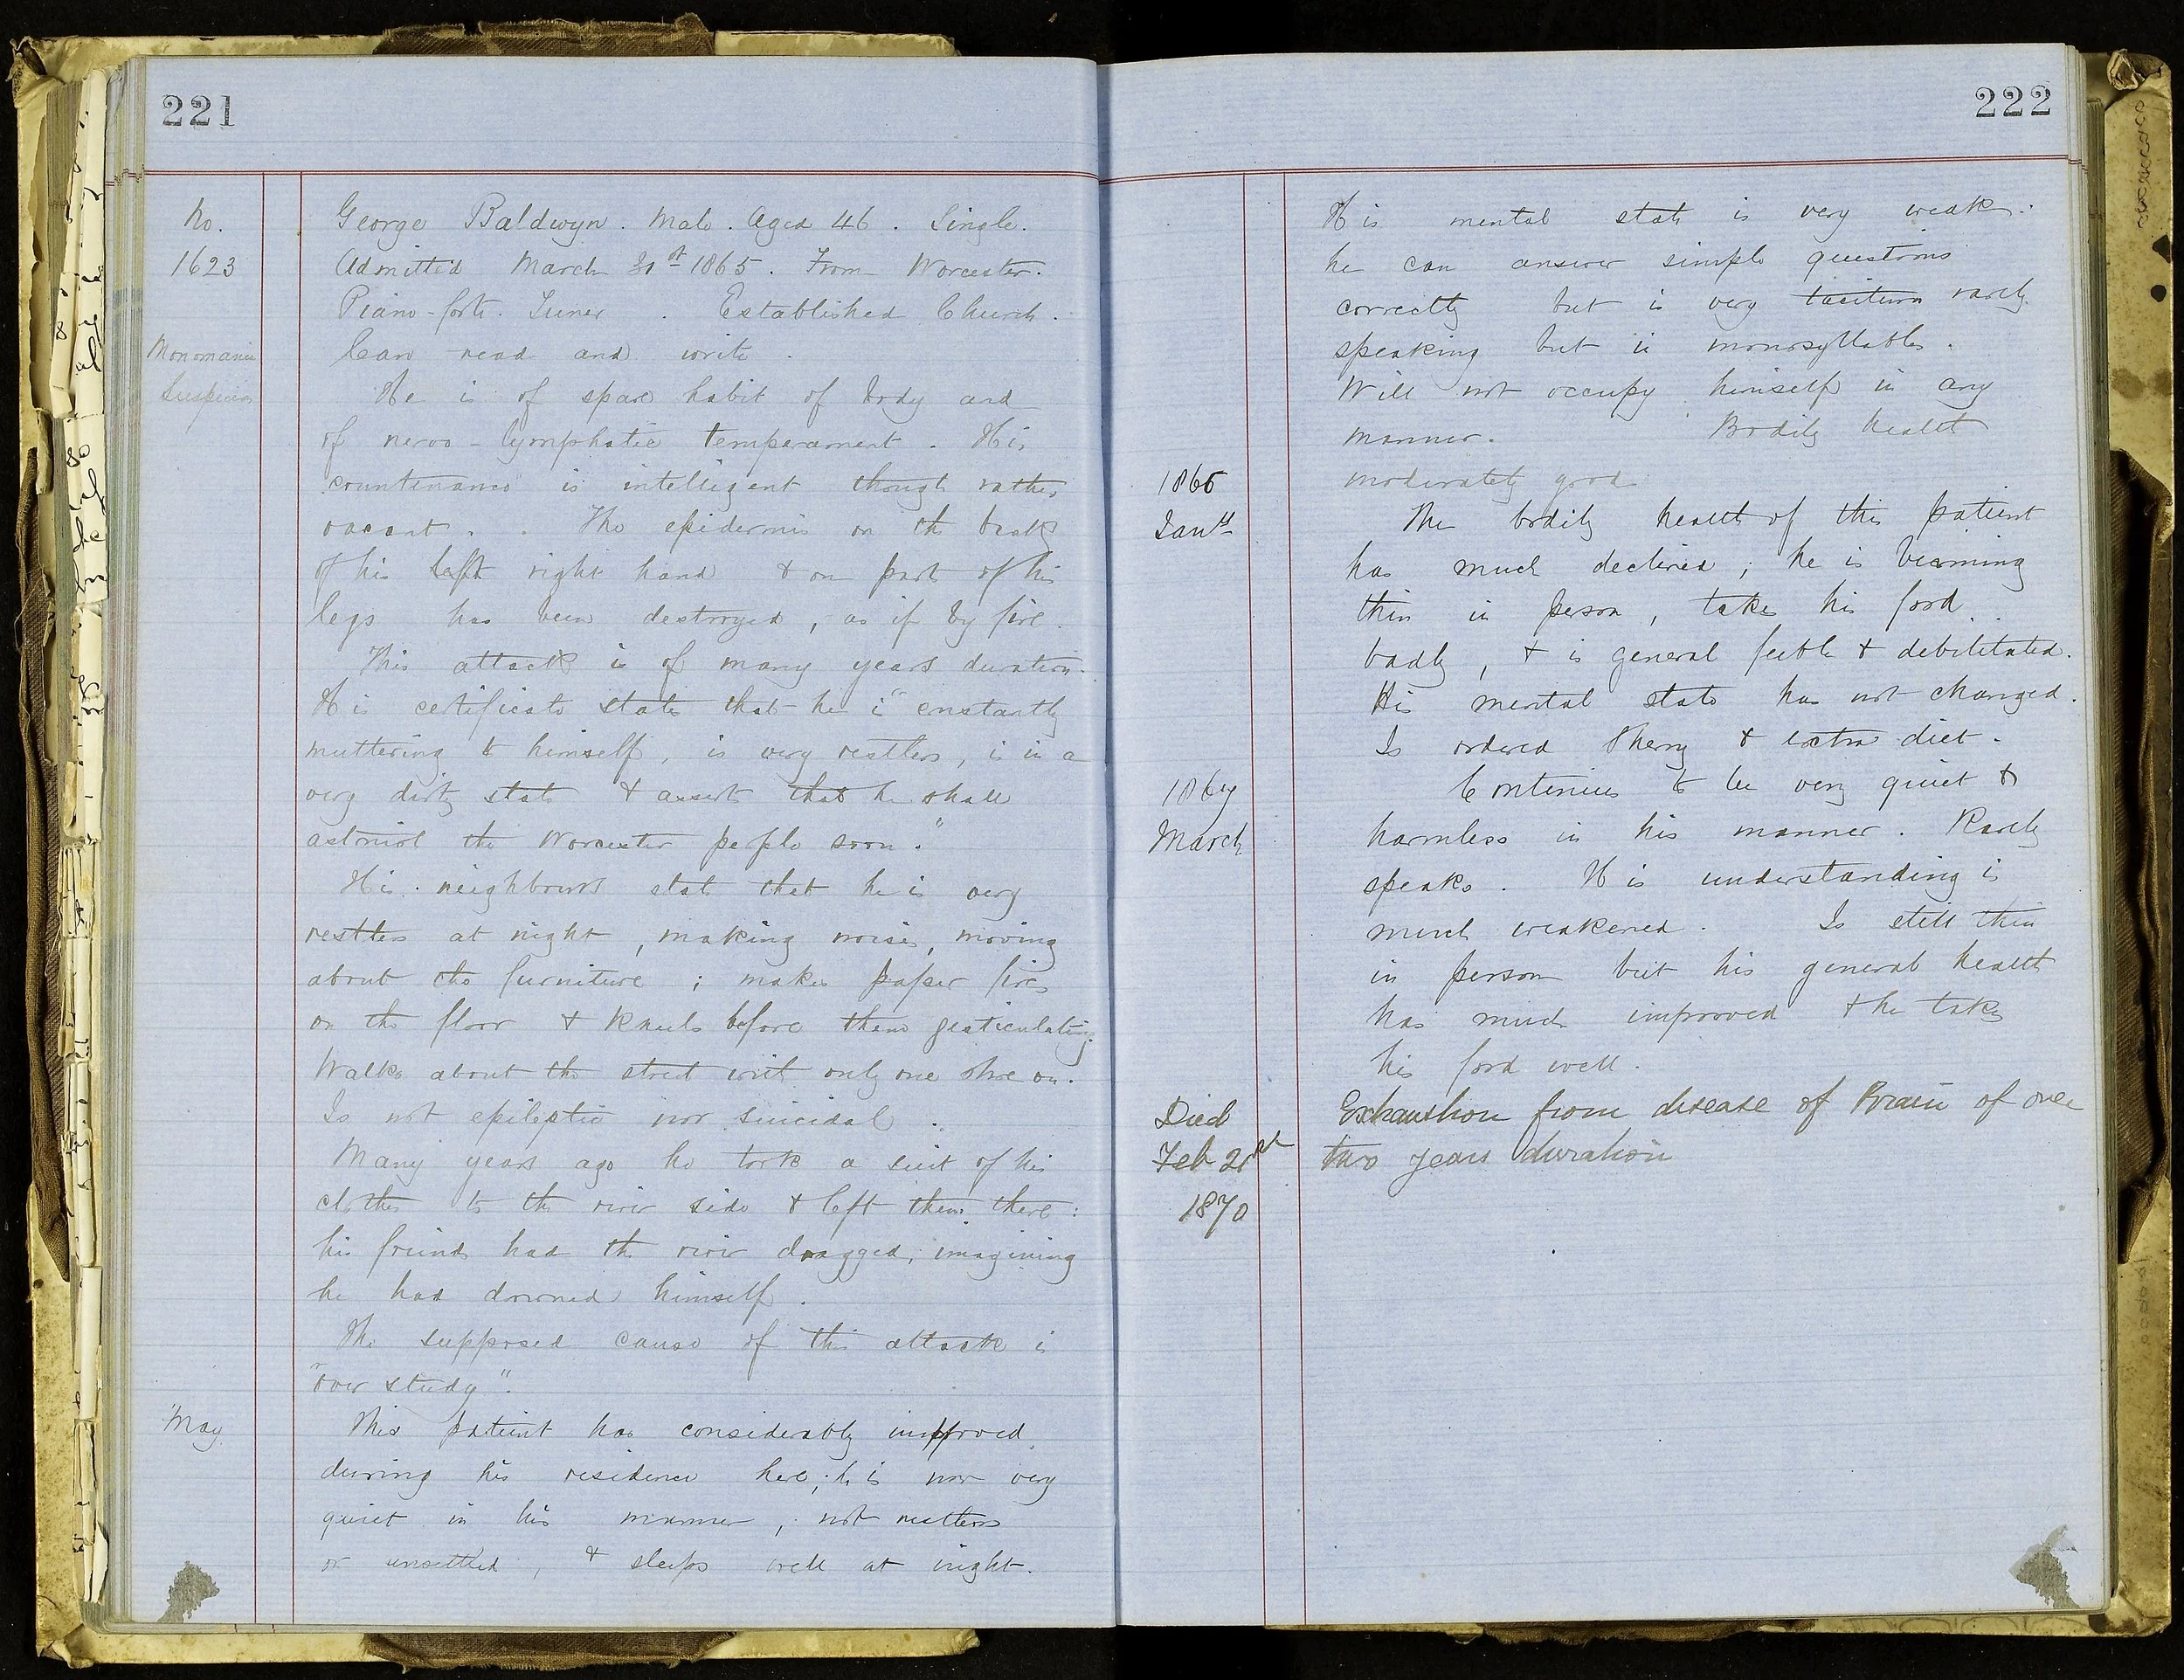 221
No.
1623
Monomania
Suspicion
George Baldwyn. Male. Aged 46. Single.
Admitted March 31st 1865. From Worcester.
Piano-forte Tuner. Established Church.
Can read and write.
He is of spare habit of body and
of nervo-lymphatic temperament. His
countenance is intelligent though rather
vacant. The epidermis on the back
of his left right hand & on part of his
legs has been destroyed, as if by fire.
This attack is of many years duration.
His certificate states that he is "constantly
muttering to himself, is very restless, is in a
very dirty state & asserts that he shall
astonish the Worcester people soon."
His neighbours state that he is very
restless at night, making noises, moving
about the furniture; makes paper fires
on the floor & kneels before them gesticulating.
Walks about the street with only one shoe on.
Is not epileptic nor suicidal.
Many years ago he took a suit of his
clothes to the river side & left them there:
his friends had the river dragged, imagining
he had drowned himself.
The supposed cause of this attack is
"over study".
May
This patient has considerably improved
during his residence here; he is now very
quiet in his manner, not restless
or unsettled, & sleeps well at night.
222
His mental state is very weak:
he can answer simple questions
correctly but is very taciturn rarely
speaking but in monosyllables.
Will not occupy himself in any
manner. Bodily health
moderately good
1866
Jany
The bodily health of this patient
has much declined; he is becoming
thin in person, takes his food
badly, & is general feeble & debilitated.
His mental state has not changed.
Is ordered Sherry & extra diet.
1867
March
Continues to be very quiet &
harmless in his manner. Rarely
speaks. His understanding is
much weakened. Is still thin
in person but his general health
has much improved & he takes
his food well.
Died
Feb 21st
1870
Exhaustion from disease of Brain of over
two years duration